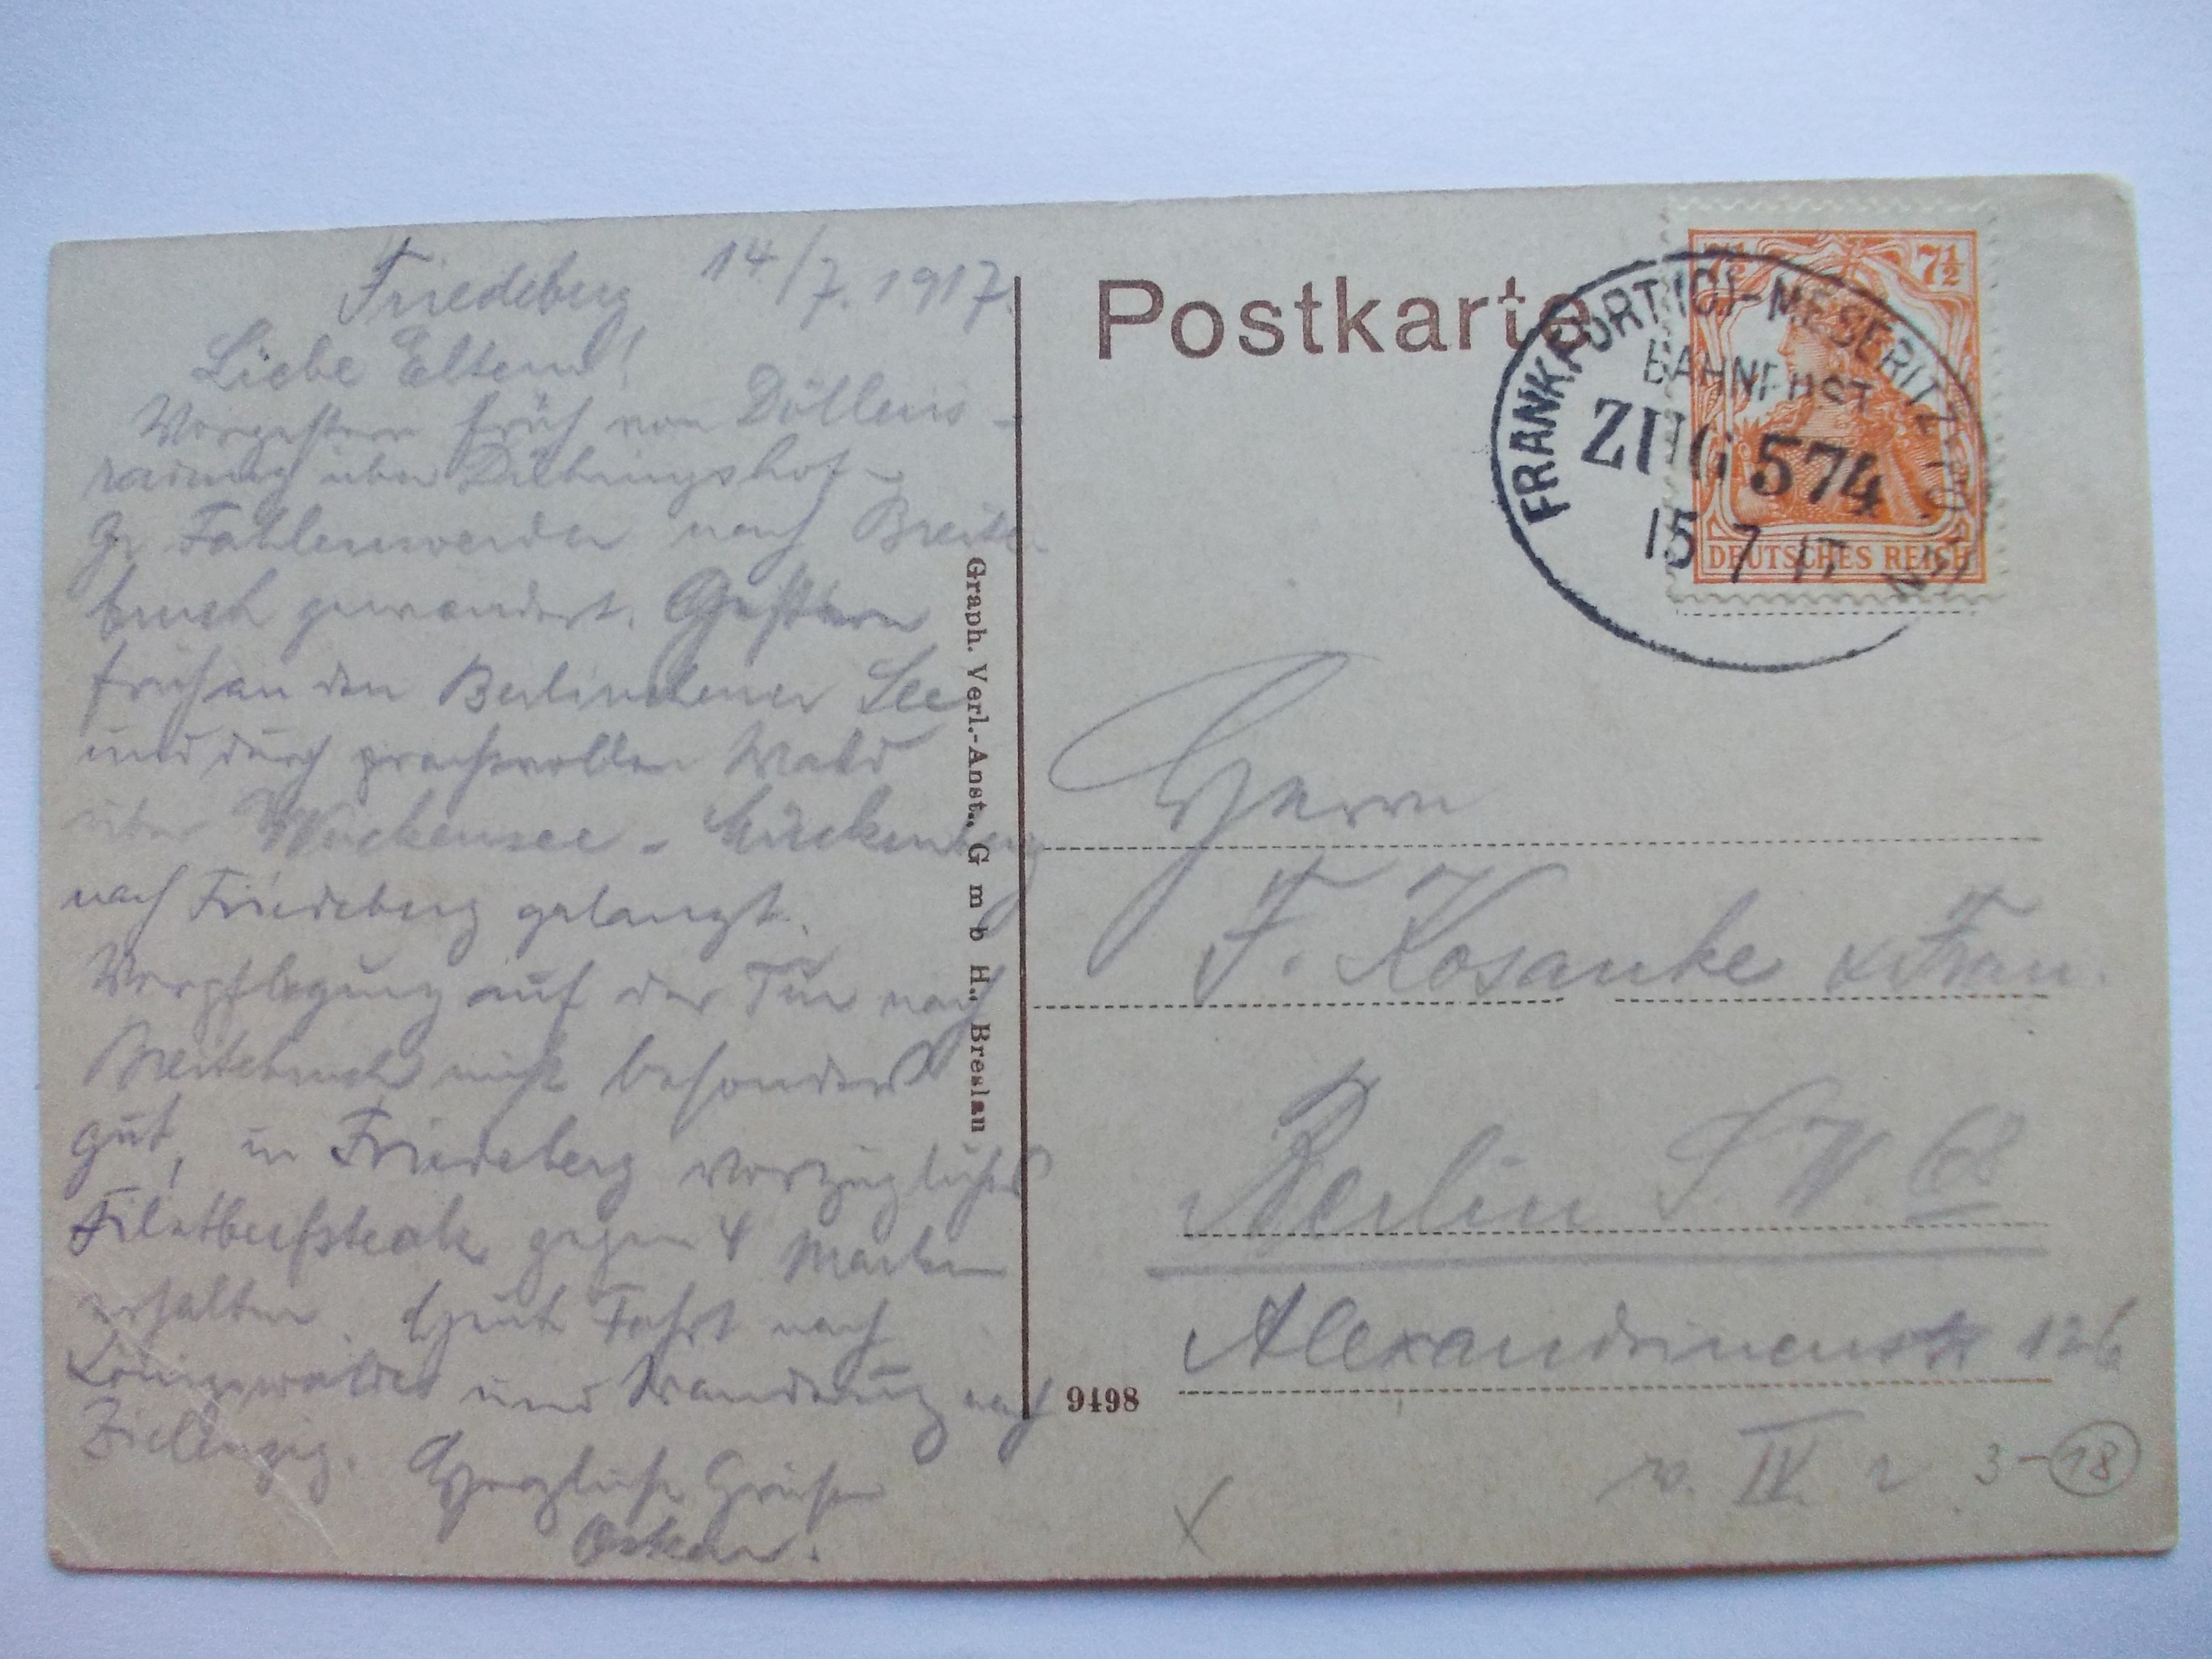 Friedeberg 14/7. 1917.
Liebe Eltern!
Vorgestern früh von Döllens-
radung über Dühringshof -
Gr Fahlenwerder nach Breiten-
bruch gewandert. Gestern
früh an den Berlinchener See
und durch prachtvollen Wald
über Wuckensee - Mückenburg
nach Friedeberg gelangt.
Verpflegung auf der Tur nach
Breitebruch nicht besonders
gut, in Friedeberg vorzügliches
Filetbeefsteak gegen 4 Marken
erhalten. Heute Fahrt nach
Königswalde und Wanderung nach
Zielenzig. Herzliche Grüße
Oskar.
Graph. Verl.-Anst., G m b H., Breslau
Postkarte
7½ 7½
DEUTSCHES REICH
FRANKFURT (O)-MESERITZ-
BAHNPOST
ZUG 574
15 7 17
Herrn
F. Kosanke & Frau.
Berlin S. W. 68
Alexandrinenstr 126
v. IV. r
9498
3-18